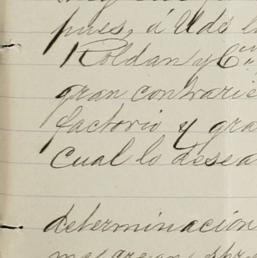 pues, á Udo l
Roldan y Cᵃ
gran contrarie
factorio y gra
cual lo desea
determinación